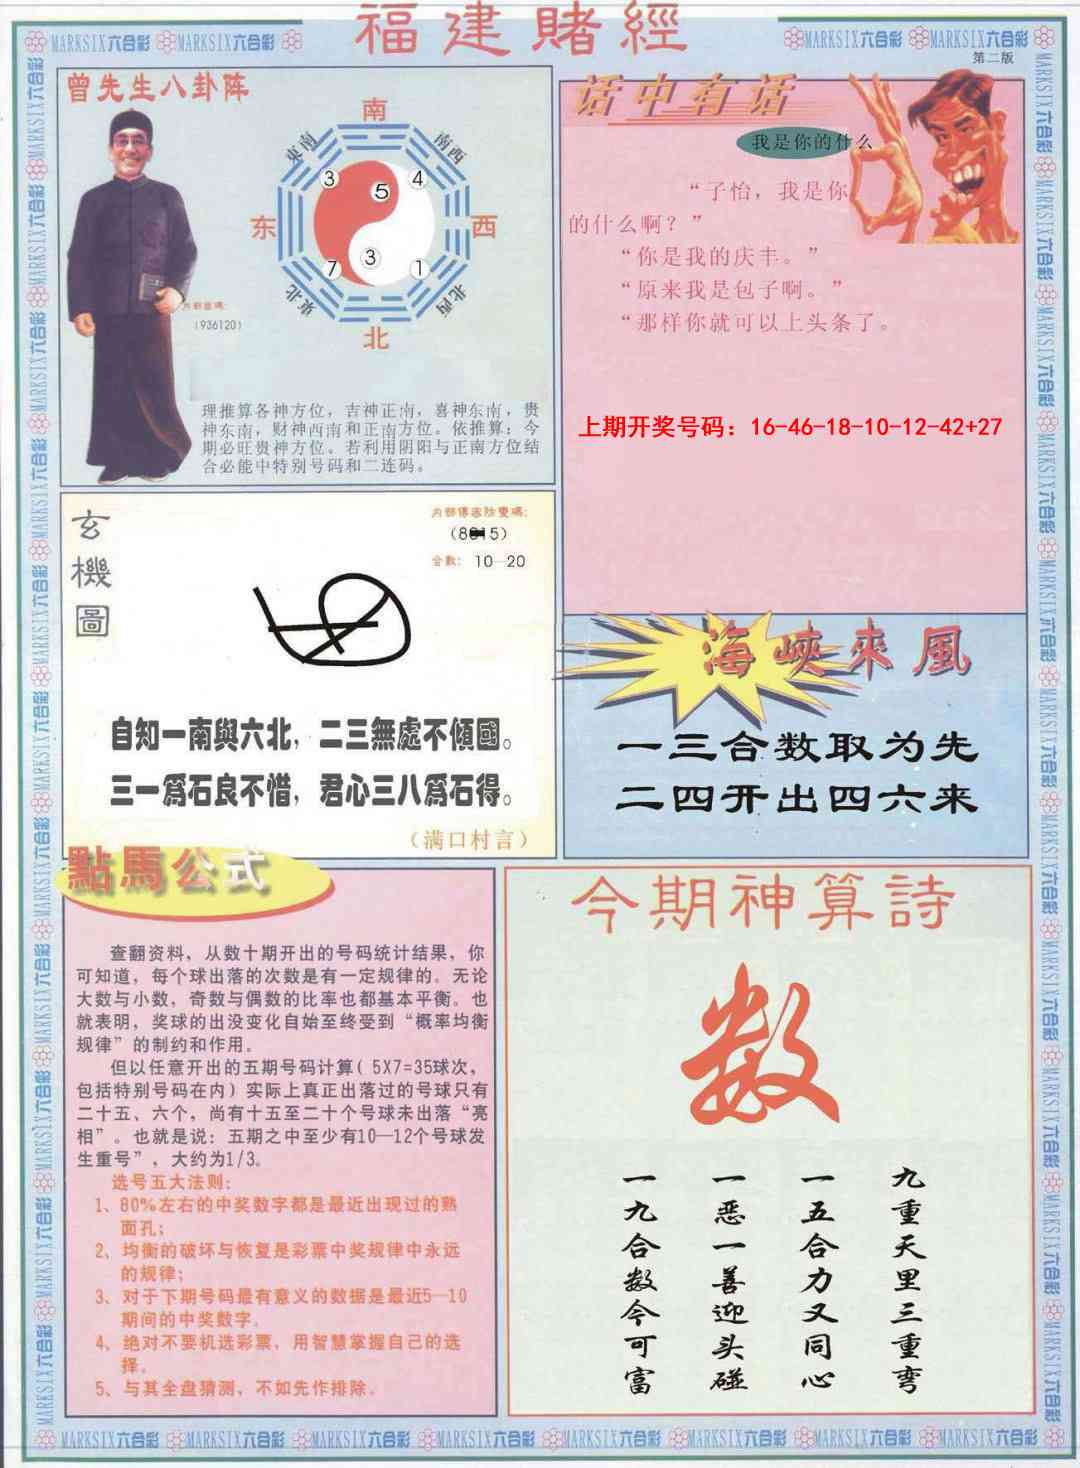 福建賭經
MARKSIX六合彩 MARKSIX六合彩
MARKSIX六合彩 MARKSIX六合彩
第二版
曾先生八卦阵
南
東南
南西
东
西
東北
北西
北
3
5
4
7
3
1
内部玄碼:
(936120)
理推算各神方位，吉神正南，喜神东南，贵
神东南，财神西南和正南方位。依推算：今
期必旺贵神方位。若利用阴阳与正南方位结
合必能中特别号码和二连码。
话中有话
我是你的什么
“子怡，我是你
的什么啊？”
“你是我的庆丰。”
“原来我是包子啊。”
“那样你就可以上头条了。
上期开奖号码：16-46-18-10-12-42+27
玄機圖
内部傳密防變碼:
合數: 10—20
自知一南與六北，二三無處不傾國。
三一爲石良不惜，君心三八爲石得。
（满口村言）
海峽來風
一三合数取为先
二四开出四六来
點馬公式
查翻资料，从数十期开出的号码统计结果，你
可知道，每个球出落的次数是有一定规律的。无论
大数与小数，奇数与偶数的比率也都基本平衡。也
就表明，奖球的出没变化自始至终受到“概率均衡
规律”的制约和作用。
但以任意开出的五期号码计算( 5X7=35球次，
包括特别号码在内）实际上真正出落过的号球只有
二十五、六个，尚有十五至二十个号球未出落“亮
相”。也就是说：五期之中至少有10—12个号球发
生重号”，大约为1/3。
选号五大法则:
1、80%左右的中奖数字都是最近出现过的熟
面孔;
2、均衡的破坏与恢复是彩票中奖规律中永远
的规律;
3、对于下期号码最有意义的数据是最近5—10
期间的中奖数字。
4、绝对不要机选彩票，用智慧掌握自己的选
择。
5、与其全盘猜测，不如先作排除。
今期神算詩
数
九重天里三重弯
一五合力又同心
一恶一善迎头碰
一九合数今可富
MARKSIX六合彩 MARKSIX六合彩 MARKSIX六合彩 MARKSIX六合彩 MARKSIX六合彩 MARKSIX六合彩 MARKSIX六合彩 MARKSIX六合彩